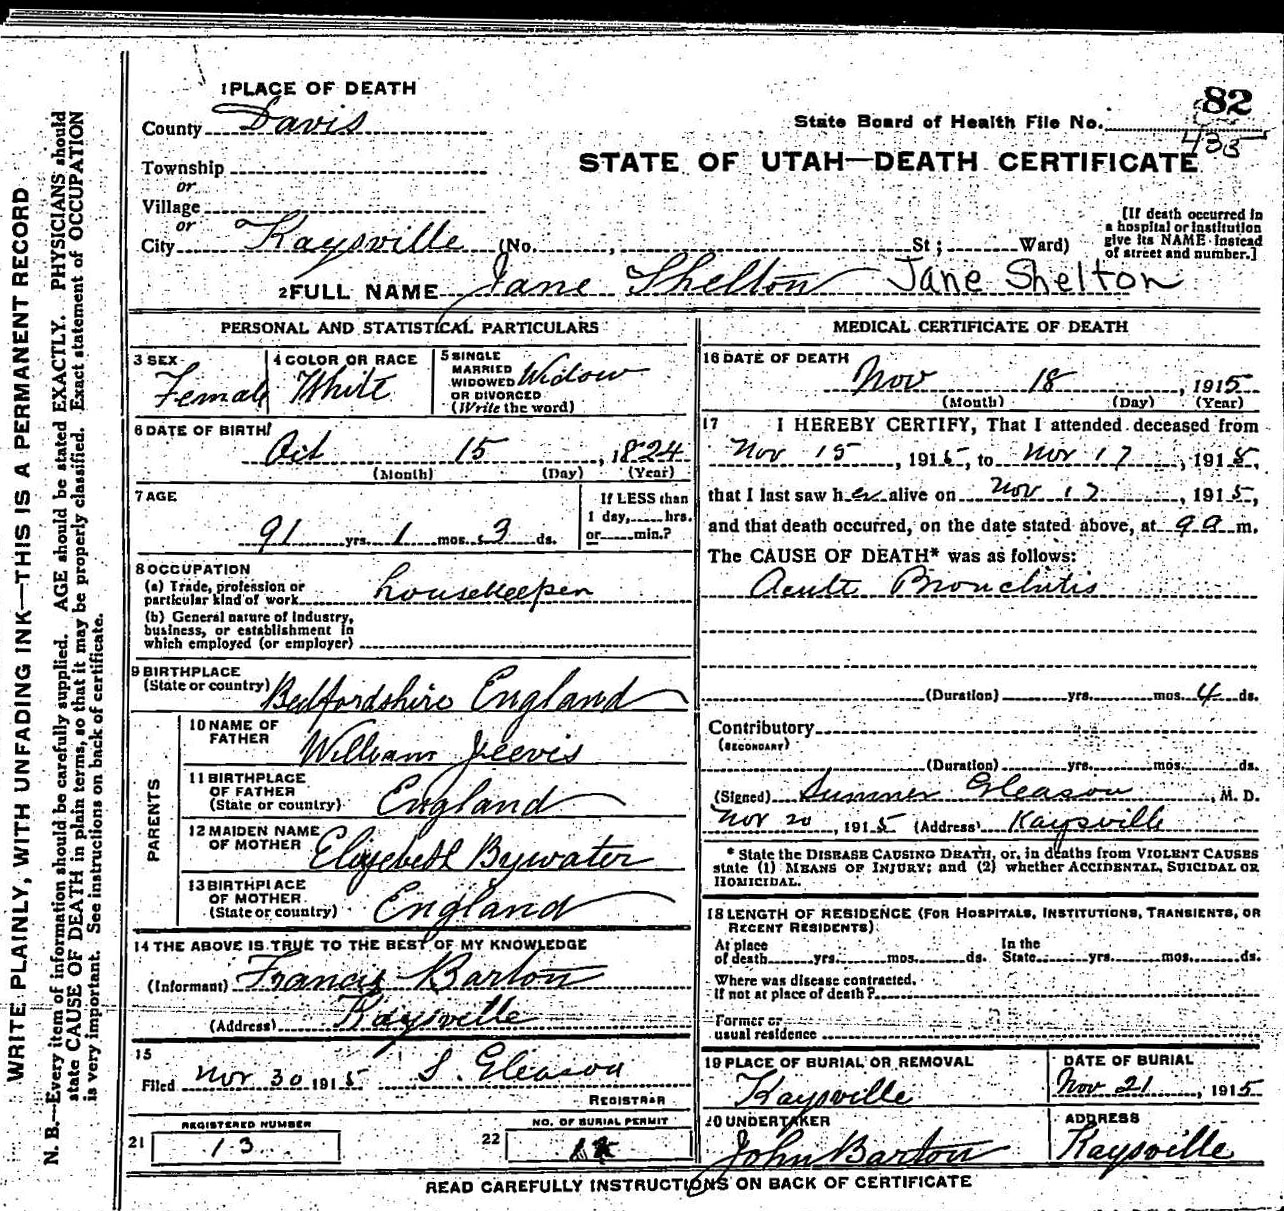 WRITE PLAINLY, WITH UNFADING INK—THIS IS A PERMANENT RECORD
N. B.—Every item of information should be carefully supplied. AGE should be stated EXACTLY. PHYSICIANS should
state CAUSE OF DEATH in plain terms, so that it may be properly classified. Exact statement of OCCUPATION
is very important. See instructions on back of certificate.
1 PLACE OF DEATH
82
County Davis
State Board of Health File No.
435
Township
STATE OF UTAH—DEATH CERTIFICATE
or
Village
or
City Kaysville (No. , St ; Ward)
[If death occurred in
a hospital or institution
give its NAME instead
of street and number.]
2 FULL NAME Jane Shelton Jane Shelton
PERSONAL AND STATISTICAL PARTICULARS
3 SEX
Female
4 COLOR OR RACE
White
5 SINGLE
MARRIED
WIDOWED Widow
OR DIVORCED
(Write the word)
6 DATE OF BIRTH
Oct 15, 1824
(Month) (Day) (Year)
7 AGE
91 yrs. 1 mos. 3 ds.
If LESS than
1 day, hrs.
or min.?
8 OCCUPATION
(a) Trade, profession or
particular kind of work housekeeper
(b) General nature of Industry,
business, or establishment in
which employed (or employer)
9 BIRTHPLACE
(State or country) Bedfordshire England
PARENTS
10 NAME OF
FATHER William Jeevis
11 BIRTHPLACE
OF FATHER
(State or country) England
12 MAIDEN NAME
OF MOTHER Elizebeth Bywater
13 BIRTHPLACE
OF MOTHER
(State or country) England
14 THE ABOVE IS TRUE TO THE BEST OF MY KNOWLEDGE
(Informant) Francis Barton
(Address) Kaysville
15
Filed Nov 30 1915 S. Gleason
REGISTRAR
21 REGISTERED NUMBER
13
22 NO. OF BURIAL PERMIT
MEDICAL CERTIFICATE OF DEATH
16 DATE OF DEATH
Nov 18, 1915
(Month) (Day) (Year)
17 I HEREBY CERTIFY, That I attended deceased from
Nov 15, 1915, to Nov 17, 1915,
that I last saw her alive on Nov 17, 1915,
and that death occurred, on the date stated above, at 9 a m.
The CAUSE OF DEATH* was as follows:
Acute Bronchitis
(Duration) yrs. mos. 4 ds.
Contributory
(SECONDARY)
(Duration) yrs. mos. ds.
(Signed) Sumner Gleason, M. D.
Nov 20, 1915 (Address) Kaysville
* State the DISEASE CAUSING DEATH, or, in deaths from VIOLENT CAUSES
state (1) MEANS OF INJURY; and (2) whether ACCIDENTAL, SUICIDAL OR
HOMICIDAL.
18 LENGTH OF RESIDENCE (FOR HOSPITALS, INSTITUTIONS, TRANSIENTS, OR
RECENT RESIDENTS)
At place
of death yrs. mos. ds.
In the
State yrs. mos. ds.
Where was disease contracted,
if not at place of death?
Former or
usual residence
19 PLACE OF BURIAL OR REMOVAL
Kaysville
DATE OF BURIAL
Nov 21, 1915
20 UNDERTAKER
John Barton
ADDRESS
Kaysville
READ CAREFULLY INSTRUCTIONS ON BACK OF CERTIFICATE